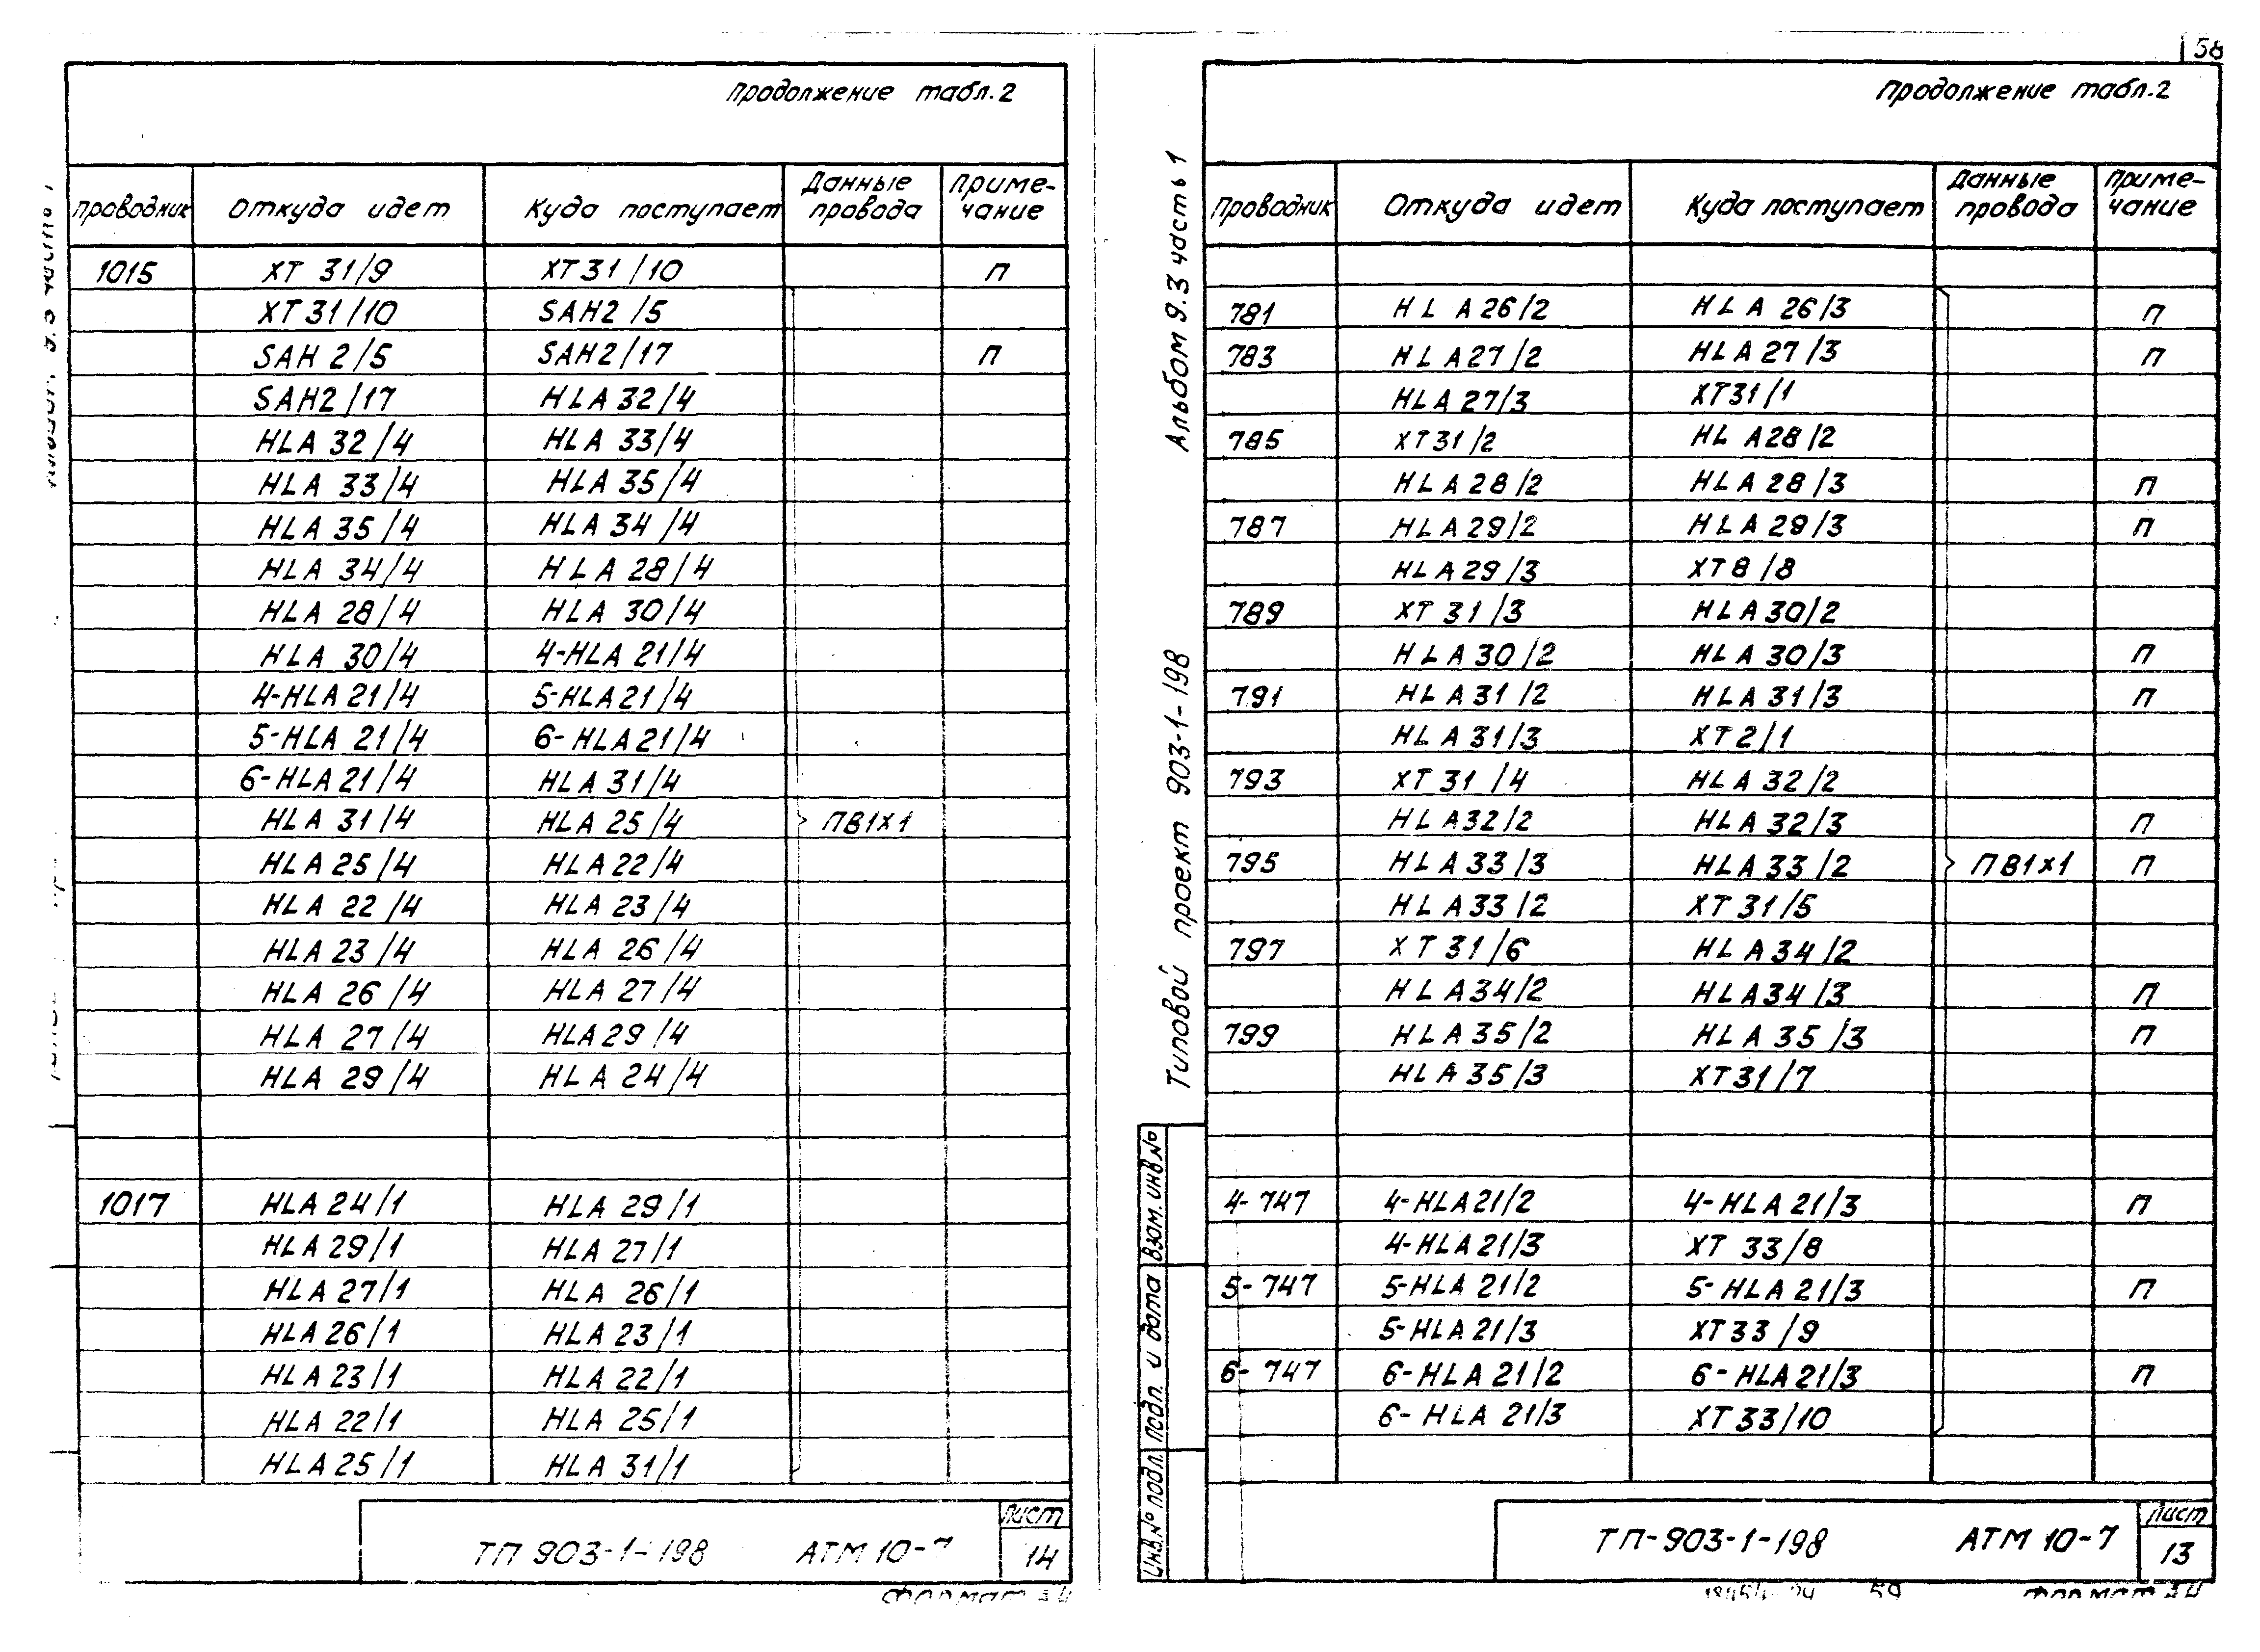 58
Продолжение табл.2
Проводник Откуда идет Куда поступает Данные провода Приме-чание
1015 XT 31/9 XT31/10 П
XT31/10 SAH2/5
SAH2/5 SAH2/17 П
SAH2/17 HLA32/4
HLA 32/4 HLA 33/4
HLA 33/4 HLA 35/4
HLA 35/4 HLA 34/4
HLA 34/4 HLA 28/4
HLA 28/4 HLA 30/4
HLA 30/4 4-HLA 21/4
4-HLA 21/4 5-HLA21/4
5-HLA 21/4 6-HLA21/4
6-HLA 21/4 HLA 31/4
HLA 31/4 HLA 25/4 ПВ1х1
HLA 25/4 HLA 22/4
HLA 22/4 HLA 23/4
HLA 23/4 HLA 26/4
HLA 26/4 HLA 27/4
HLA 27/4 HLA29/4
HLA 29/4 HLA 24/4
1017 HLA 24/1 HLA 29/1
HLA 29/1 HLA 27/1
HLA 27/1 HLA 26/1
HLA 26/1 HLA 23/1
HLA 23/1 HLA 22/1
HLA 22/1 HLA 25/1
HLA 25/1 HLA 31/1
ТП 903-1-198 АТМ 10-7 Лист 14
Формат
Альбом 9.3 часть 1
Типовой проект 903-1-198
Продолжение табл.2
Проводник Откуда идет Куда поступает Данные провода Приме-чание
781 HLA26/2 HLA 26/3 П
783 HLA27/2 HLA27/3 П
HLA27/3 XT31/1
785 XT31/2 HLA28/2
HLA28/2 HLA28/3 П
787 HLA29/2 HLA29/3 П
HLA29/3 XT8/8
789 XT 31/3 HLA30/2
HLA30/2 HLA30/3 П
791 HLA31/2 HLA31/3 П
HLA31/3 XT2/1
793 XT 31/4 HLA 32/2
HLA32/2 HLA 32/3 П
795 HLA33/3 HLA33/2 ПВ1х1 П
HLA33/2 XT31/5
797 XT31/6 HLA34/2
HLA34/2 HLA34/3 П
799 HLA35/2 HLA 35/3 П
HLA 35/3 XT31/7
4-747 4-HLA21/2 4-HLA 21/3 П
4-HLA21/3 XT 33/8
5-747 5-HLA 21/2 5-HLA 21/3 П
5-HLA21/3 XT33/9
6-747 6-HLA 21/2 6-HLA21/3 П
6-HLA 21/3 XT33/10
Инв.№ подл. Подп. и дата Взам. инв.№
ТП-903-1-198 АТМ 10-7 Лист 13
59 Формат